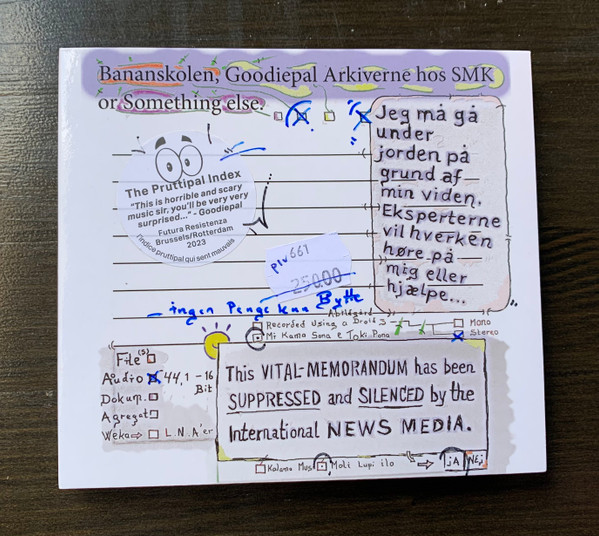 Bananskolen, Goodiepal Arkiverne hos SMK
or Something else.
Jeg må gå
under
jorden på
grund af
min viden.
Eksperterne
vil hverken
høre på
mig eller
hjælpe...
The Pruttipal Index
"This is horrible and scary
music sir, you'll be very very
surprised..." - Goodiepal
Futura Resistenza
Brussels/Rotterdam
2023
l'indice pruttipal qui sent mauvais
plv 661
250.00
- ingen Penge kun Bytte
Recorded Using a Droid 3
Mono
Mi Kama Sona e Toki Pona
Stereo
File(s)
Audio 44,1 - 16
Bit
Dokum.
Agregat
Weka⇒ L.N.A'er
This VITAL-MEMORANDUM has been
SUPPRESSED and SILENCED by the
International NEWS MEDIA.
Kalama Mus Moli Lupi ilo ⇒ jA NEj